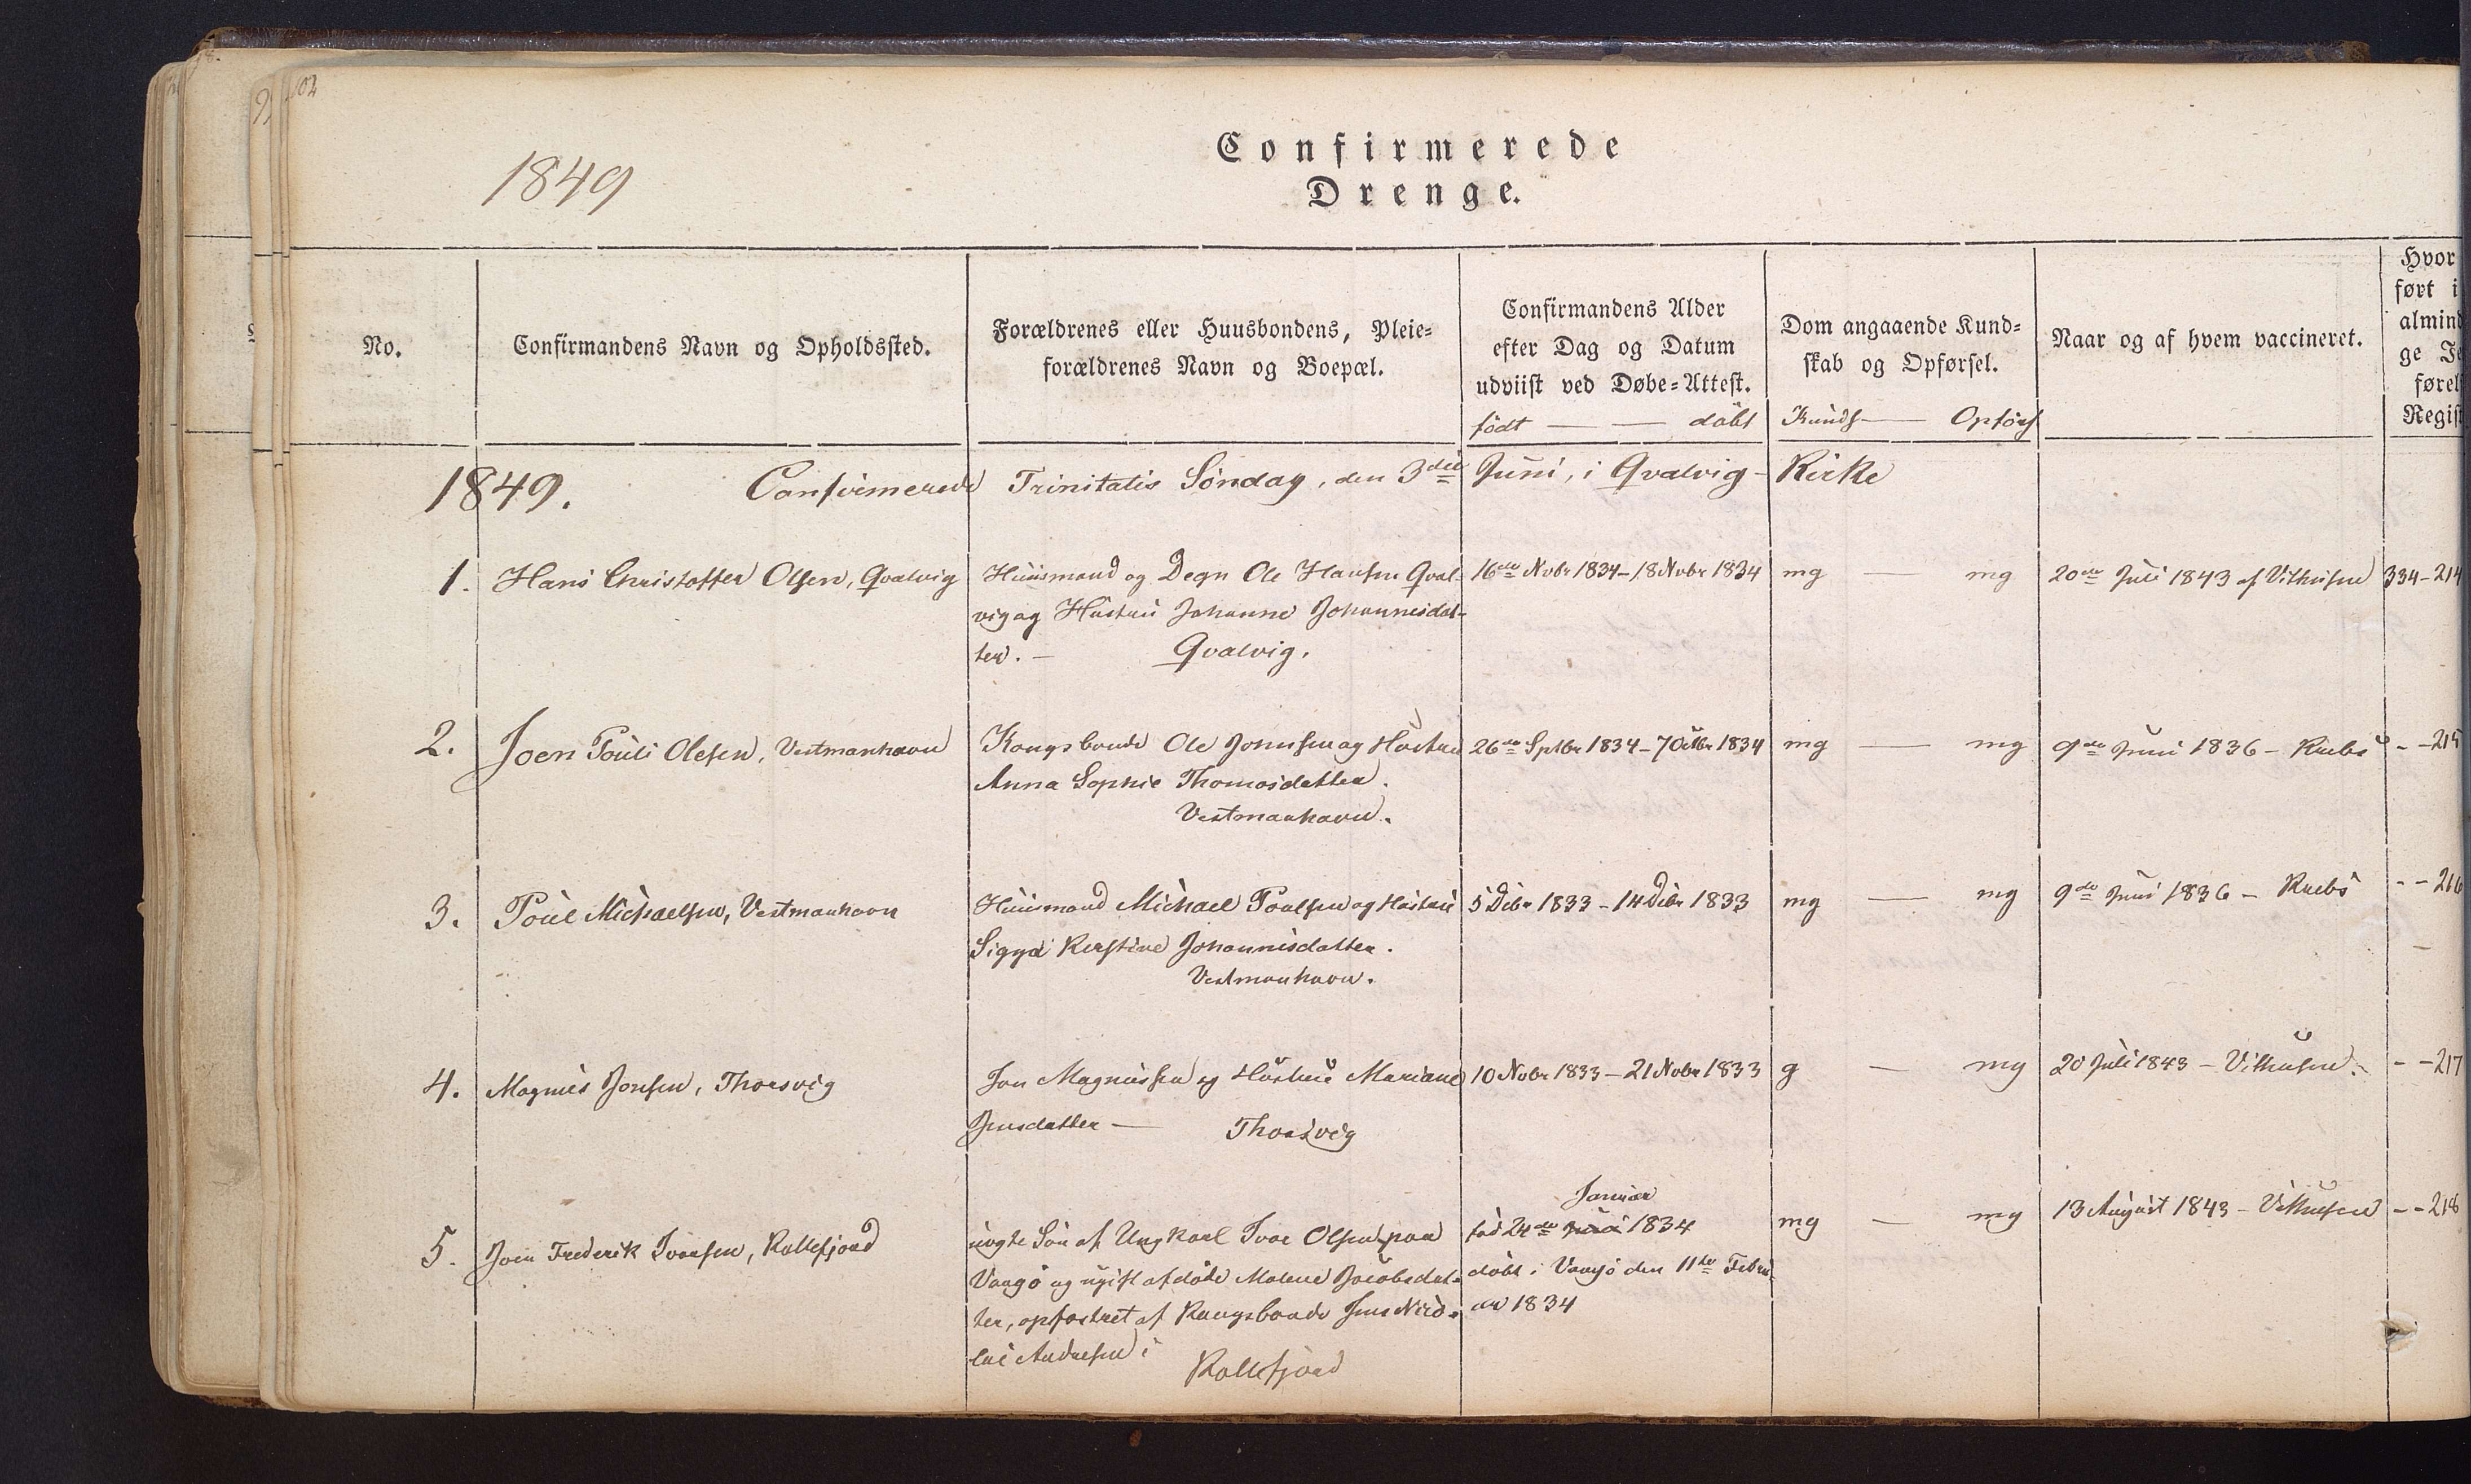 102
1849
Confirmerede
Drenge.
No.
Confirmandens Navn og Opholdssted.
Forældrenes eller Huusbondens, Pleie=
forældrenes Navn og Boepæl.
Confirmandens Alder
efter Dag og Datum
udviist ved Døbe=Attest.
födt — — döbt
Dom angaaende Kund=
skab og Opførsel.
Kunds — Opförs
Naar og af hvem vaccineret.
Hvor
ført i
almind
ge Je
førel
Regist
1849. Confirmerede Trinitatis Söndag, den 3die Juni, i Qvalvig - Kirke
1. Hans Christoffer Olsen, Qvalvig
Huusmand og Degn Ole Hansen Qval-
vig og Hustru Johanne Johannesdat-
ter. — Qvalvig.
16de Novbr 1834 - 18 Novbr 1834
mg — mg
20de Juli 1843 af Vilhelmsen
334-214
2. Joen Pouli Olesen, Vestmanhavn
Kongsbonde Ole Joensen og Hustru
Anna Sophie Thomasdatter.
Vestmanhavn.
26de Sptbr 1834 - 7 Octbr 1834
mg — mg
9de Juni 1836 -
- -215
3. Poul Michaelsen, Vestmanhavn
Huusmand Michael Poulsen og Hustru
Kirstine Johannisdatter.
Vestmanhavn.
5 Decbr 1833 - 14 Decbr 1833
mg — mg
9de Juni 1836 -
- -216
4. Magnus Jonsen, Thorsvig
Jon Magnussen og Hustru Mariane
Jensdatter — Thorsvig
10 Novbr 1833 - 21 Novbr 1833
g — mg
20 Juli 1843 -
- -217
5. Joen Frederik Ivarsen, Kollefjord
uægte Sön af Ungkarl Ivar Olsen paa
Vaagö og ugift afdöde Malene Jacobsdat-
ter, opfostret af Kongsbonde Jens
Andresen i
Kollefjord
Januar
född 24de 1834
döbt i Vaagö den 11te Febru-
ar 1834
mg — mg
13 August 1843 -
- -218